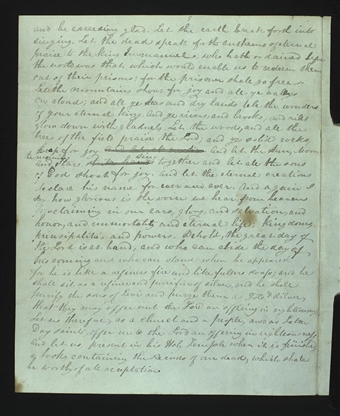 and be exceeding glad. Let the earth break forth into
singing. Let the dead speak forth anthems of eternal
praise to the King Immanuel, who hath ordained before
the world was that which would enable us to redeem them
out of their prisons; for the prisoner shall go free.
Let the mountains shout for joy and all ye vallies
cry aloud; and all ye seas and dry lands tell the wonders
of your eternal King. And ye rivers and brooks, and rills
flow down with gladness. Let the woods, and all the
trees of the field praise the Lord; and ye solid rocks
weep for joy. And let the sun, moon
and the morning stars sing together and let all the sons
of God shout for joy. And let the eternal creations
declare his name for ever and ever. And again I
say how glorious is the voice we hear from heaven
proclaiming in our ears, glory, and salvation, and
honor, and immortality and eternal life; kingdoms,
principalities and powers. Behold, the great day of
the Lord is at hand, and who can abide the day of
his coming and who can stand when he appeareth
for he is like a refiners fire and like fullers soap; and he
shall sit as a refiner and purifier of silver, and he shall
purify the sons of Levi and purge them as gold & silver,
that they may offer unto the Lord an offering in righteousness.
Let us therefore, as a church and a people, and as Latter
Day Saints offer unto the Lord an offering in righteousness,
and let us present in his Holy Temple when it is finished
a book containing the records of our dead, which shall
be worthy of all acceptation